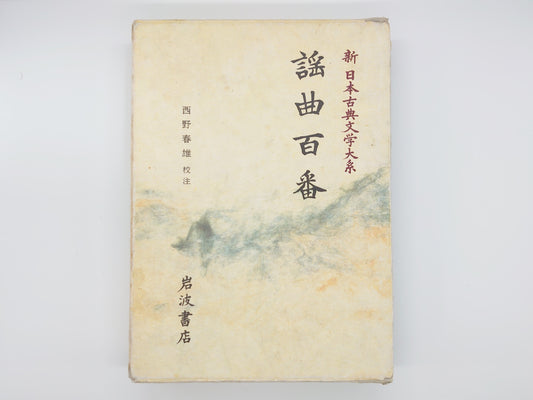 新 日本古典文学大系
謡曲百番
西野春雄 校注
岩波書店